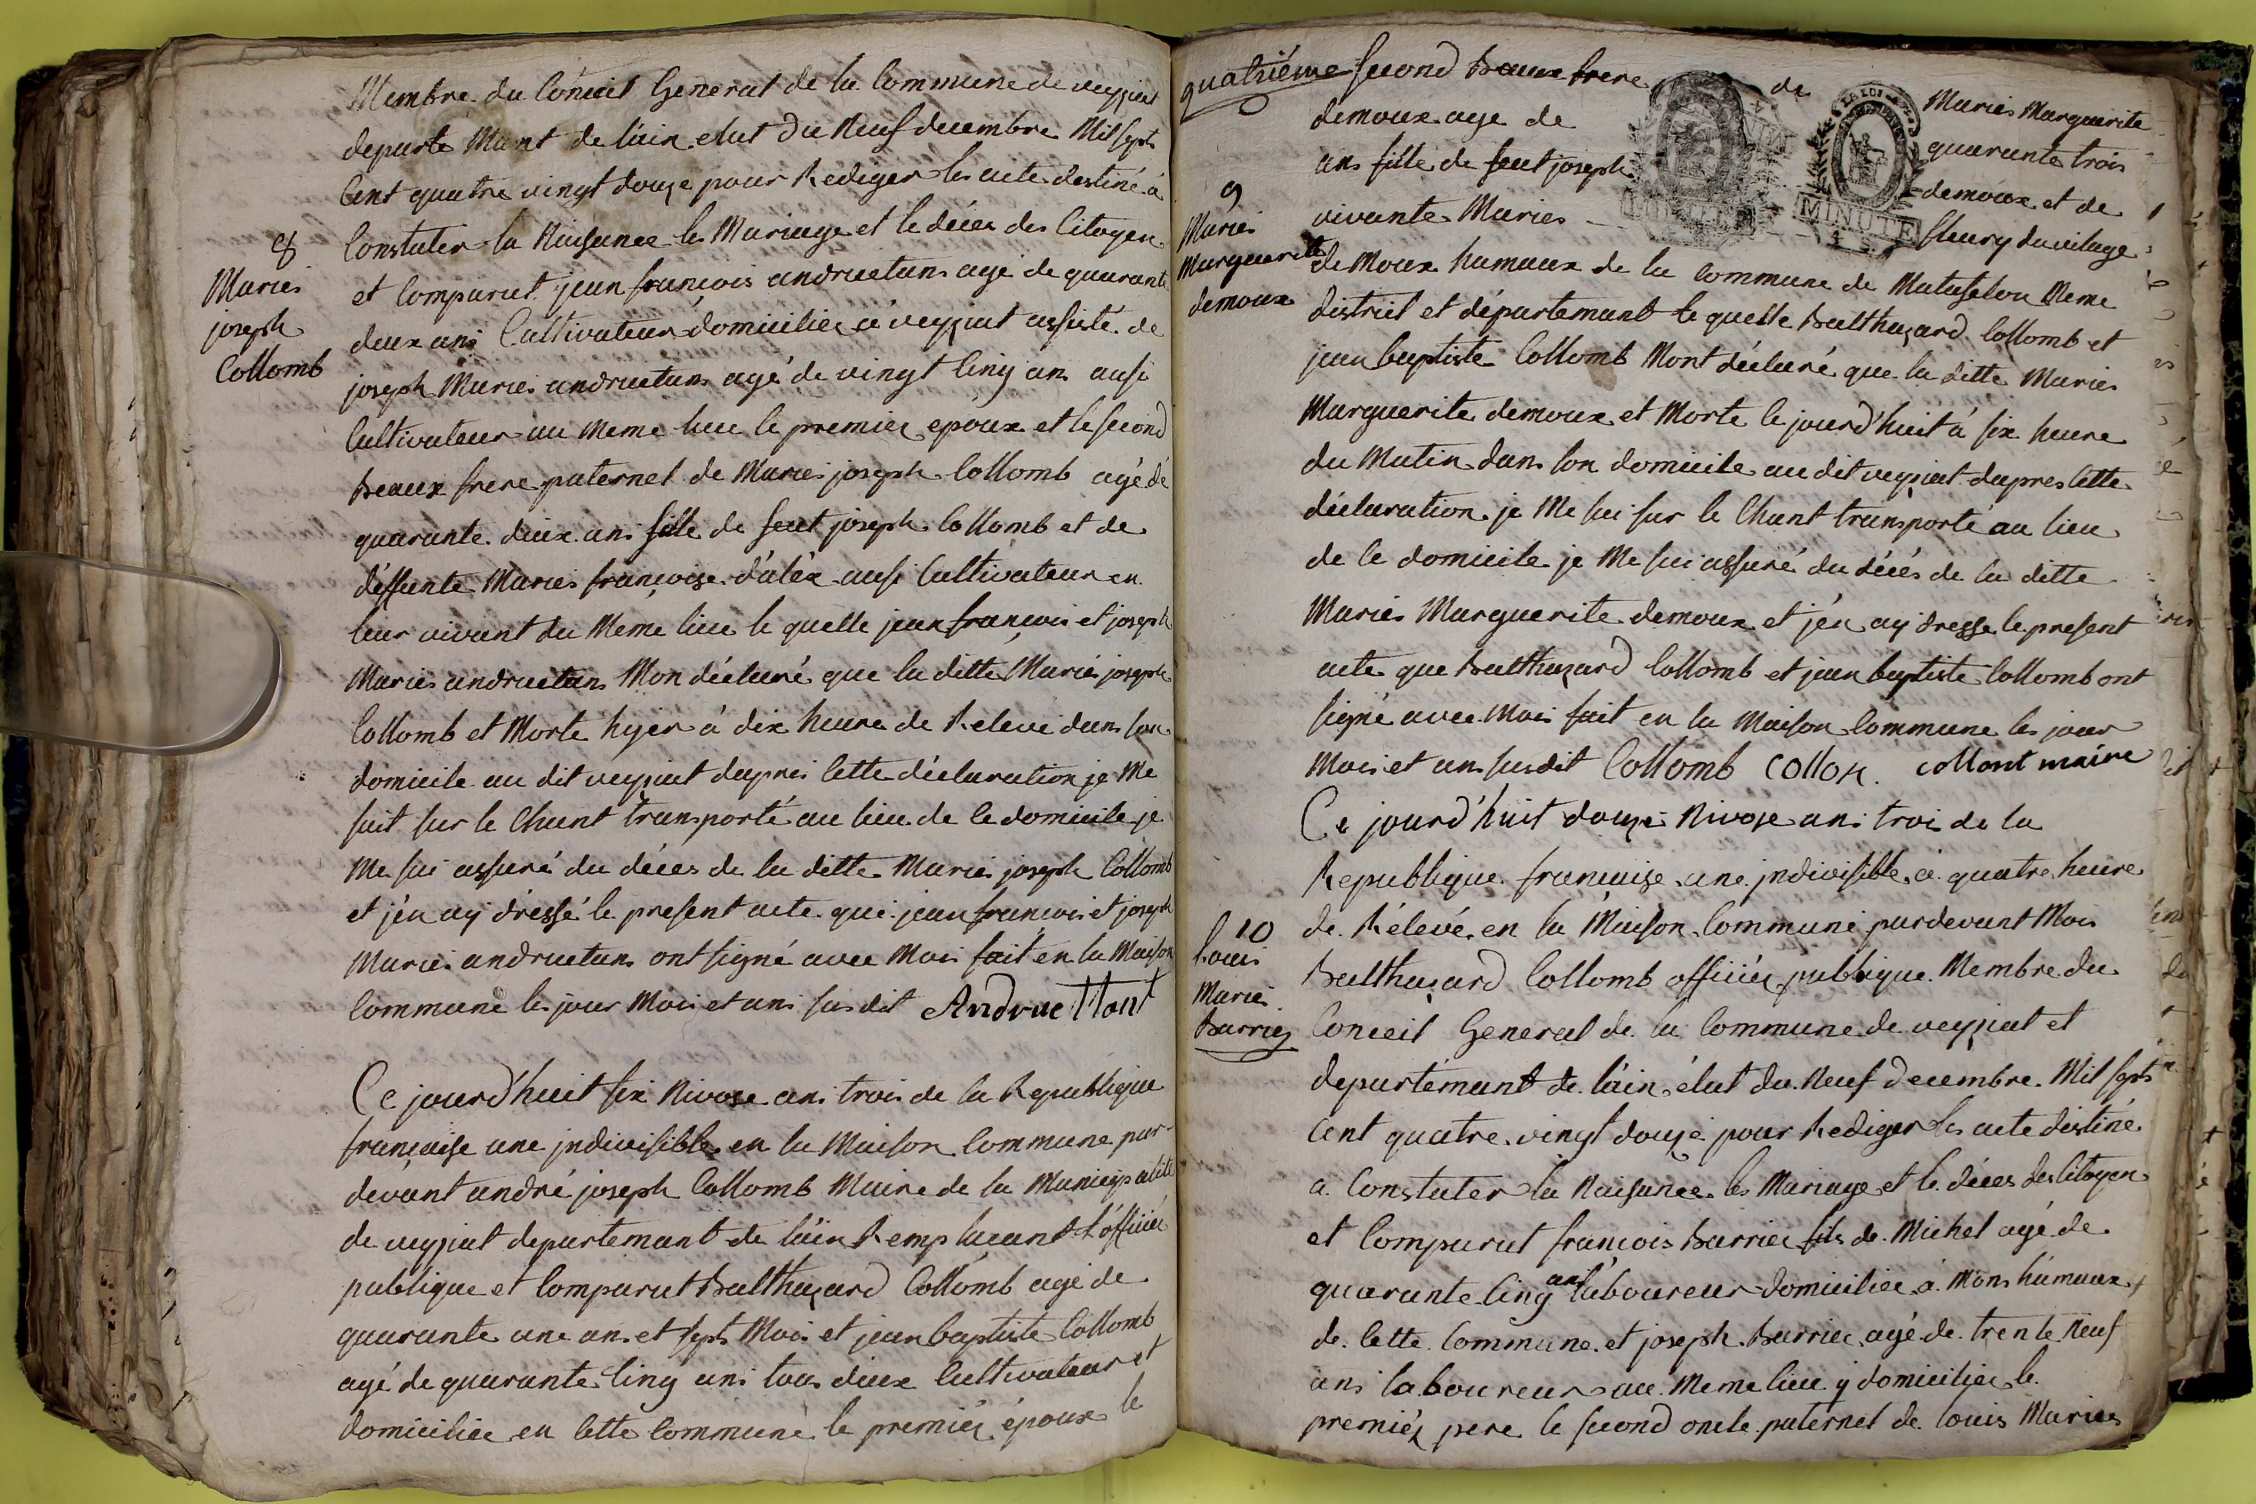 Membre du Conceil General de la Commune de veyziat
departe Mant de l'ain elut du Neuf decembre Mil sept
Cent quatre vingt douze pour Rediger les acte destiné à
Constater la Naisance les Mariage et le décès des Citoyen
et Comparut jean françois andruetans agé de quarante
deux ans Cultivateur domiciliée à veyziat assisté de
joseph Maries andruetans agé de vingt Cinq ans ausi
Cultivateur au Meme lieu le premier epoux et le second
beaux frere paternel de Maries joseph Collomb agé de
quarante deux ans fille de feut joseph Collomb et de
déffunte Maries françoise d'aléx ausi Cultivateur en
leur vivant du Meme lieu le quelle jean françois et joseph
Maries andruetans Mon déclaré que la ditte Maries joseph
Collomb et Morte hyer à dix heure de Relevé dans son
domicile au dit veyziat dapres Cette déclaration je Me
suit sur le Chant transporté au lieu de Ce domicile je
Me sui assuré du décès de la ditte Maries joseph Collomb
et j'en ay dressé le present acte que jean françois et joseph
Maries andruetans ont signé avec Mois fait en la Maison
Commune les jour Mois et ans susdit Andruettant
8
Maries
joseph
Collomb
Ce jourd'huit six Nivose ans trois de la Republique
française une jndivisible en la Maison Commune par-
devant andré joseph Collomb Maire de la Municipalité
de veyziat departemant de l'ain Remplacant l'officiér
publique et Comparut Balthazard Collomb agé de
quarante une ans et sept Mois et jean baptiste Collomb
agé de quarante Cinq ans tous deux Cultivateur et
domiciliée en Cette Commune le premiér époux le
quatriéme second beaux frere de Maries Marguerite
demoux age de quarante trois
ans fille de feut joseph demoux et de
vivante Maries fleury du vilage
LA LOI
MINUTE
9
Maries
Marguerite
demoux
de Moux humaux de la Commune de Matafelon Meme
district et département le quelle Balthazard Collomb et
jean baptiste Collomb Mont déclaré que la ditte Maries
Marguerite demoux et Morte le jourd'huit à six heure
du Matin dans son domicile au dit veyziat dapres Cette
déclaration je Me sui sur le Chant transporté au lieu
de Ce domicile je Me sui assuré du décés de la ditte
Maries Marguerite demoux et j'en ay dresse le present
acte que Balthazard Collomb et jean baptiste Collomb ont
signé avec Mois fait en la Maison Commune les jour
Mois et ans susdit Collomb COLLON. collont maire
Ce jourd'huit douze Nivose ans trois de la
Republique française une jndivisible à quatre heure
de Rélevé en la Maison Commune pardevant Mois
Balthazard Collomb officiér publique Membre du
Conceil General de la Commune de veyziat et
departémant de l'ain élut du Neuf decembre Mil sept
Cent quatre vingt douze pour Rediger les acte déstiné
a Constater la Naisance les Mariage et le décès des Citoyen
et Comparut françois barrier fils de Michel agé de
quarante Cinq ans laboureur domiciliée à Mons húmaux
de Cette Commune et joseph barrier agé de trente Neuf
ans laboureur au Meme lieu y domiciliée le
premiér pere le second oncle paternel de louis Maries
10
louis
Maries
barrier